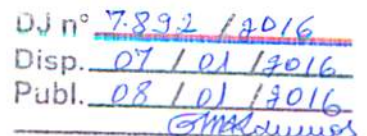 DJ nº 7.892 / 2016
Disp. 07 / 01 / 2016
Publ. 08 / 01 / 2016